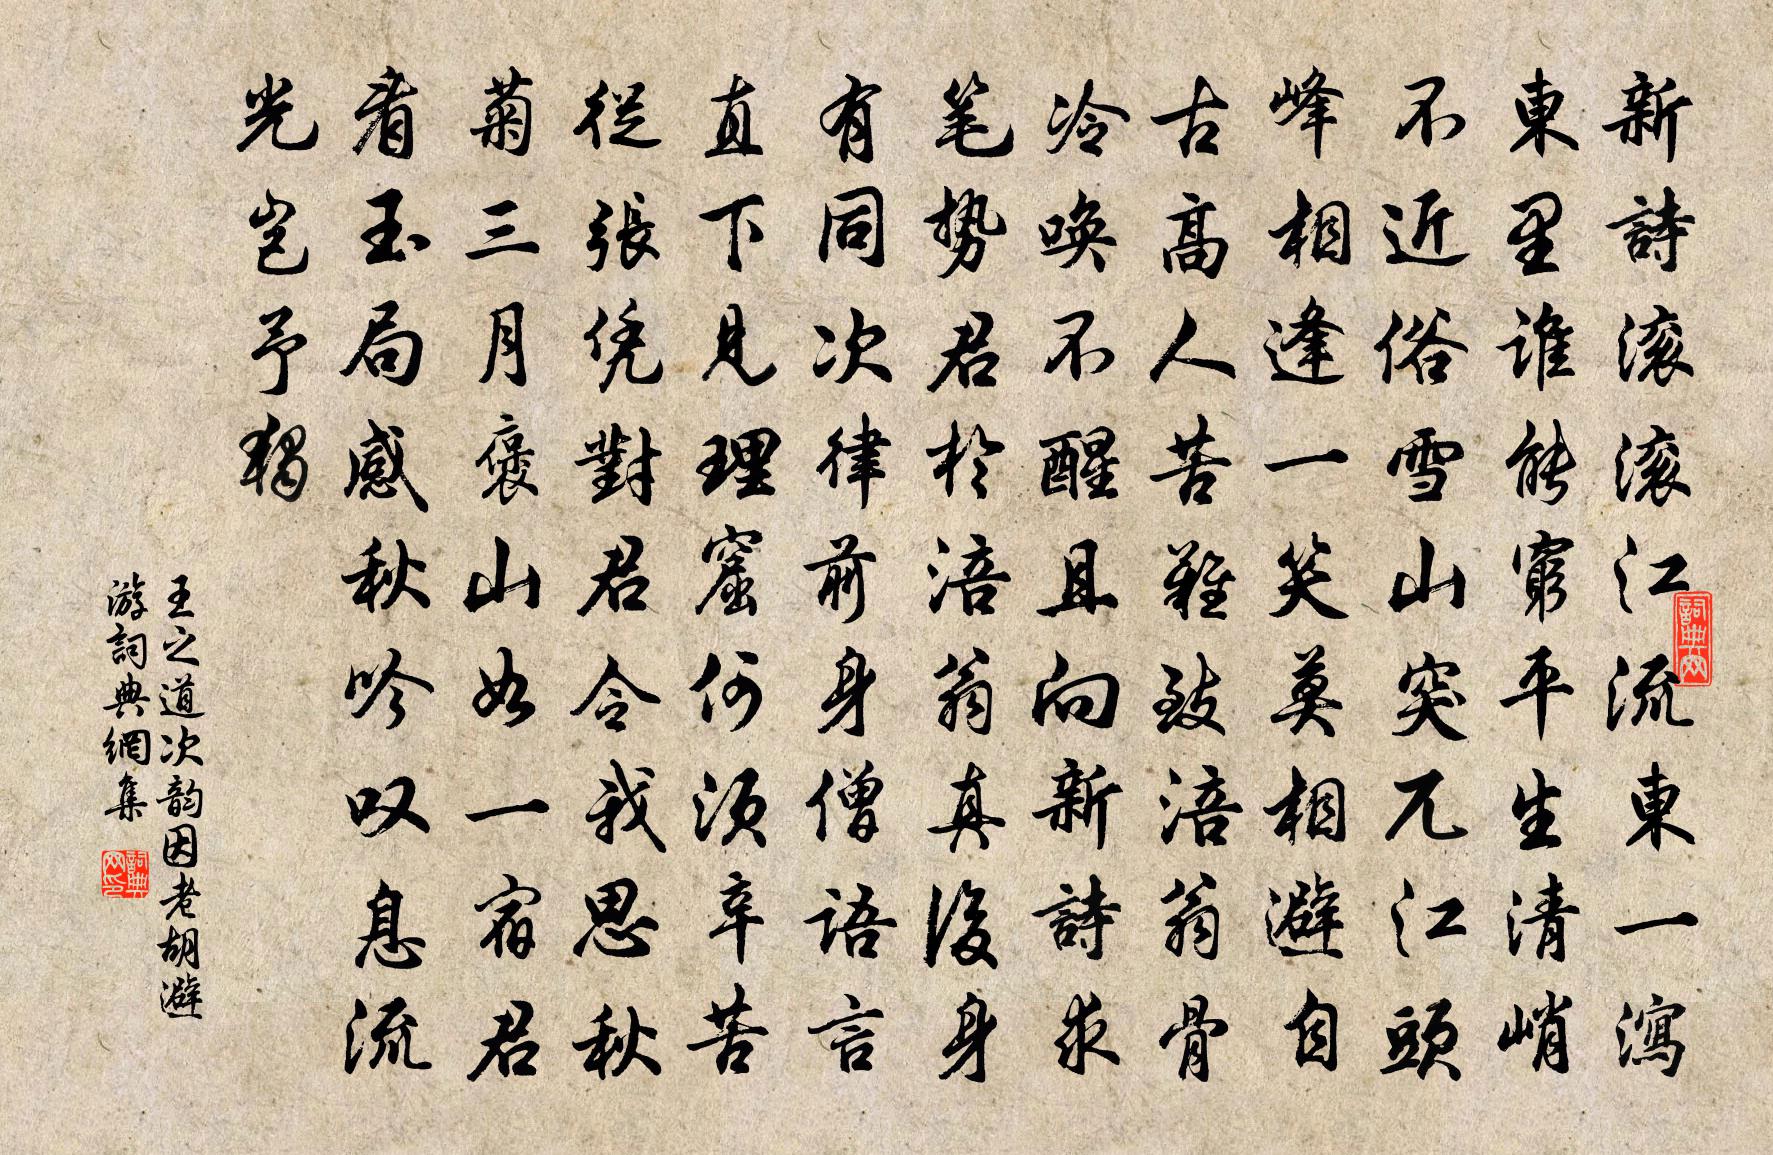 新詩滚滚江流東一瀉
東里誰能窮平生清峭
不近俗雪山突兀江頭
峰相逢一笑莫相避自
古高人苦難致涪翁骨
冷唤不醒且向新詩求
笔势君於涪翁真後身
有同次律前身僧语言
直下見理窟何須辛苦
從張凭對君令我思秋
菊三月褒山如一宿君
看玉局感秋吟叹息流
光岂予獨
王之道次韵因老胡避
游詞典網集
詞典网
詞典网印